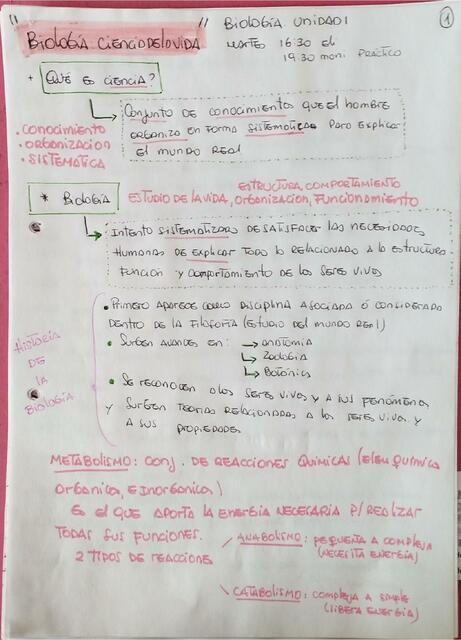 Biología Unidad 1
①
"Biología ciencia de la vida"
Martes 16:30 a
19:30 moni práctico
+ Qué es ciencia?
Conjunto de conocimientos que el hombre
organiza en forma sistemática para explicar
el mundo real
• conocimiento
• organizacion
• sistemática
* Biología
estudio de la vida, organización, funcionamiento
estructura, comportamiento
Intento sistematizado de satisfacer las necesidades
humanas de explicar todo lo relacionado a la estructura
función y comportamiento de los seres vivos
Historia
de
la
Biología
• Primero aparece como disciplina asociada ó considerada
dentro de la filosofía (estudio del mundo real)
• Surgen avances en: → anatomía
→ Zoología
→ Botánica
• Se reconocen a los seres vivos y a sus fenómenos
y surgen teorías relacionadas a los seres vivos y
a sus propiedades
Metabolismo: conj. de reacciones químicas (en química
organica, e inorgánica)
es el que aporta la energía necesaria p/ realizar
todas sus funciones.
2 tipos de reacciones
/ Anabolismo: pequeña a compleja
(necesita energía)
\ Catabolismo: compleja a simple
(libera energía)